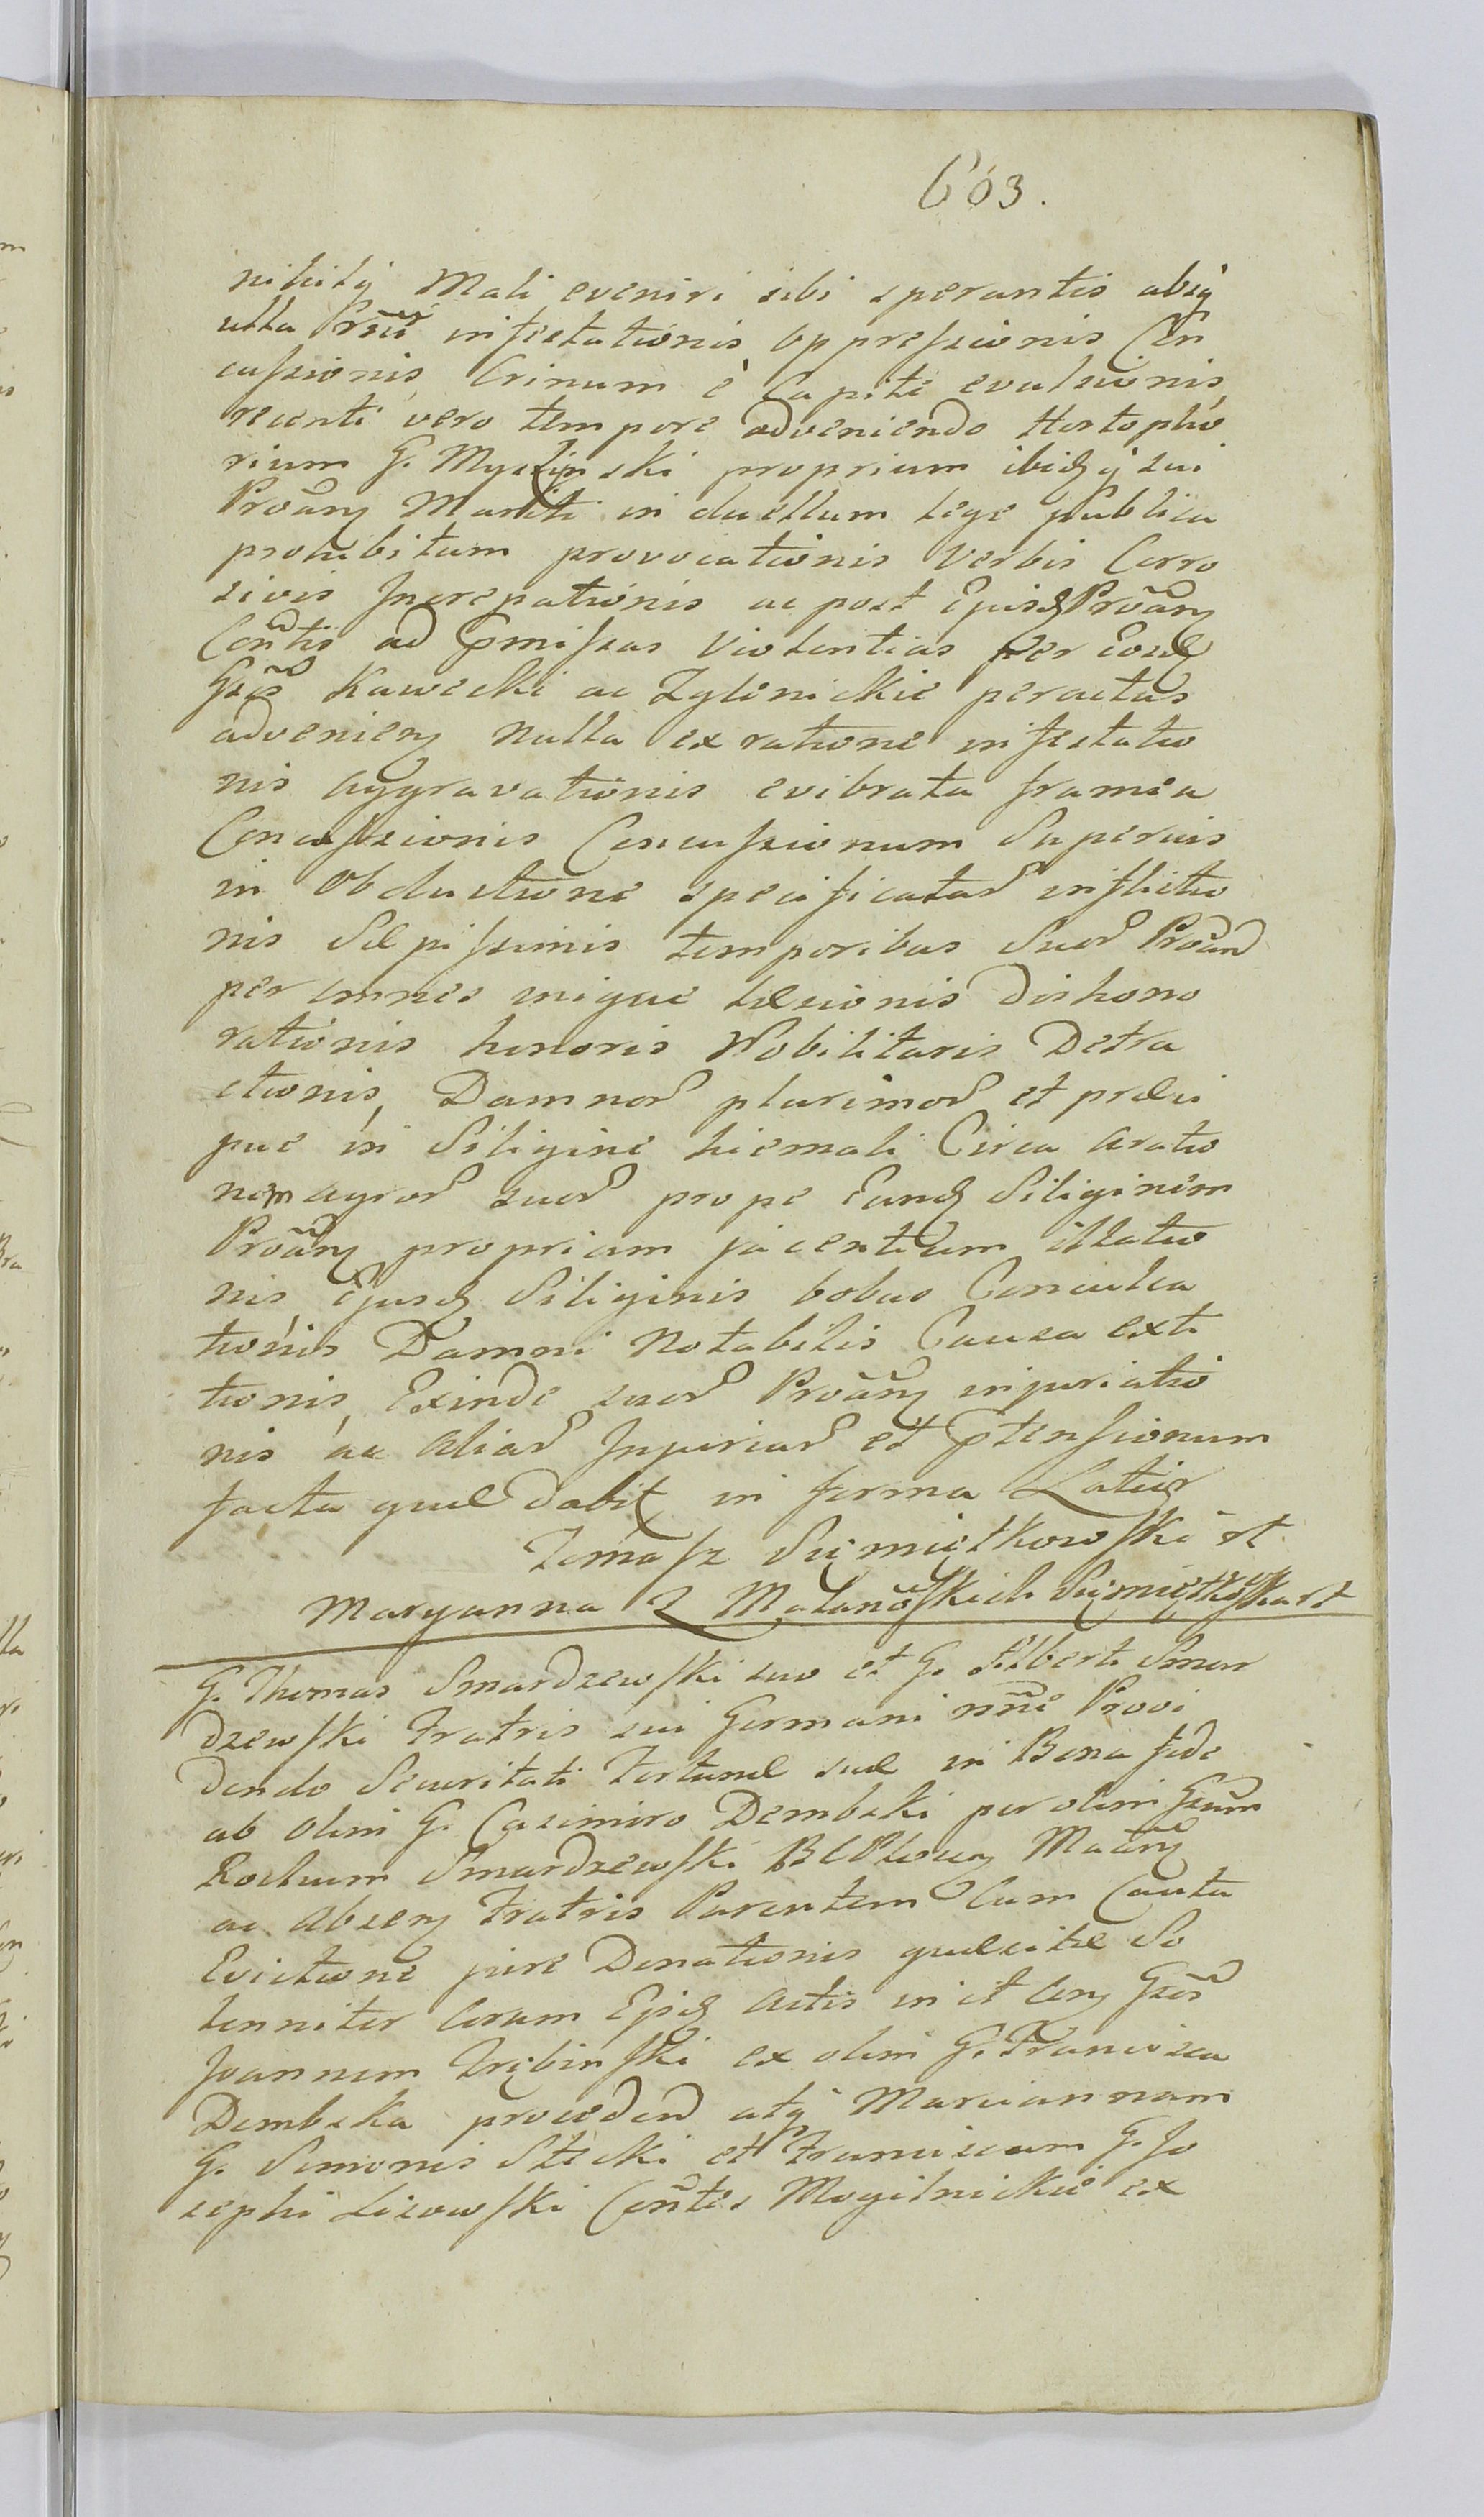 603.
nihilq̃ Mali eveniri sibi sperantis absq̃
ulla infectationis oppressionis Con
cussionis, Crinum è Capite evulsionis,
recenti vero tempore adveniendo Hortopho
rium G. Myslinski proprium ibidq̃ sui
Prõãn Mariti in duellum lege publica
prohibitum provocationis verbis Corro
sivis Increpationis ac post Ejusd Prõãn
Cõntis ad pmissas Violentias per eosd
Gsõs Kawecki ac Zglenickie peractas
advenien nulla ex ratione infestatio
nis aggravationis evibrata framea
Concussionis Concussionum Superius
in Obductione specificatar inflictio
nis Sæpissimis temporibus Suor Prõãn
per omnes inique læsionis dishono
rationis honoris Nobilitaris Detra
ctionis, Damnor plurimor et præci
pue in Siligine hiemali Circa aratio
nem agror suor prope Eand Siliginem
Prõãn propriam jacentium illatio
nis, Ejusd Siliginis bobus Conculca
tionis Damni Notabilis Causa exti
tionis, Exinde suor Prõãn injuriatio
nis ac aliar Injuriar et ptensionum
facta quæ dabit in forma Latius
Tomasz Sumiętkowski st
Maryanna Z Malanõskich st
G. Thomas Smardzewski suo et G. Alberti Smar
dzewski Fratris sui Germani nñe Provi
dendo Securitati Fortunæ suæ in Bona fide
ab olim G. Casimiro Dembski per olim Gsum
Rochum Smardzewski Mãñ
ac Absen Fratris Parentem Cum Cauta
Evictione jure Donationis quæsitæ So
lenniter Coram Ejsd Actis in et Con Gsõs
Joannem Trębinski ex olim G. Francisca
Dembska proceden atq̃ Mariannam
G. Simonis Stecki et Franciscam G. Jo
sephi Lisowski Cõntes Mogilnickie ex